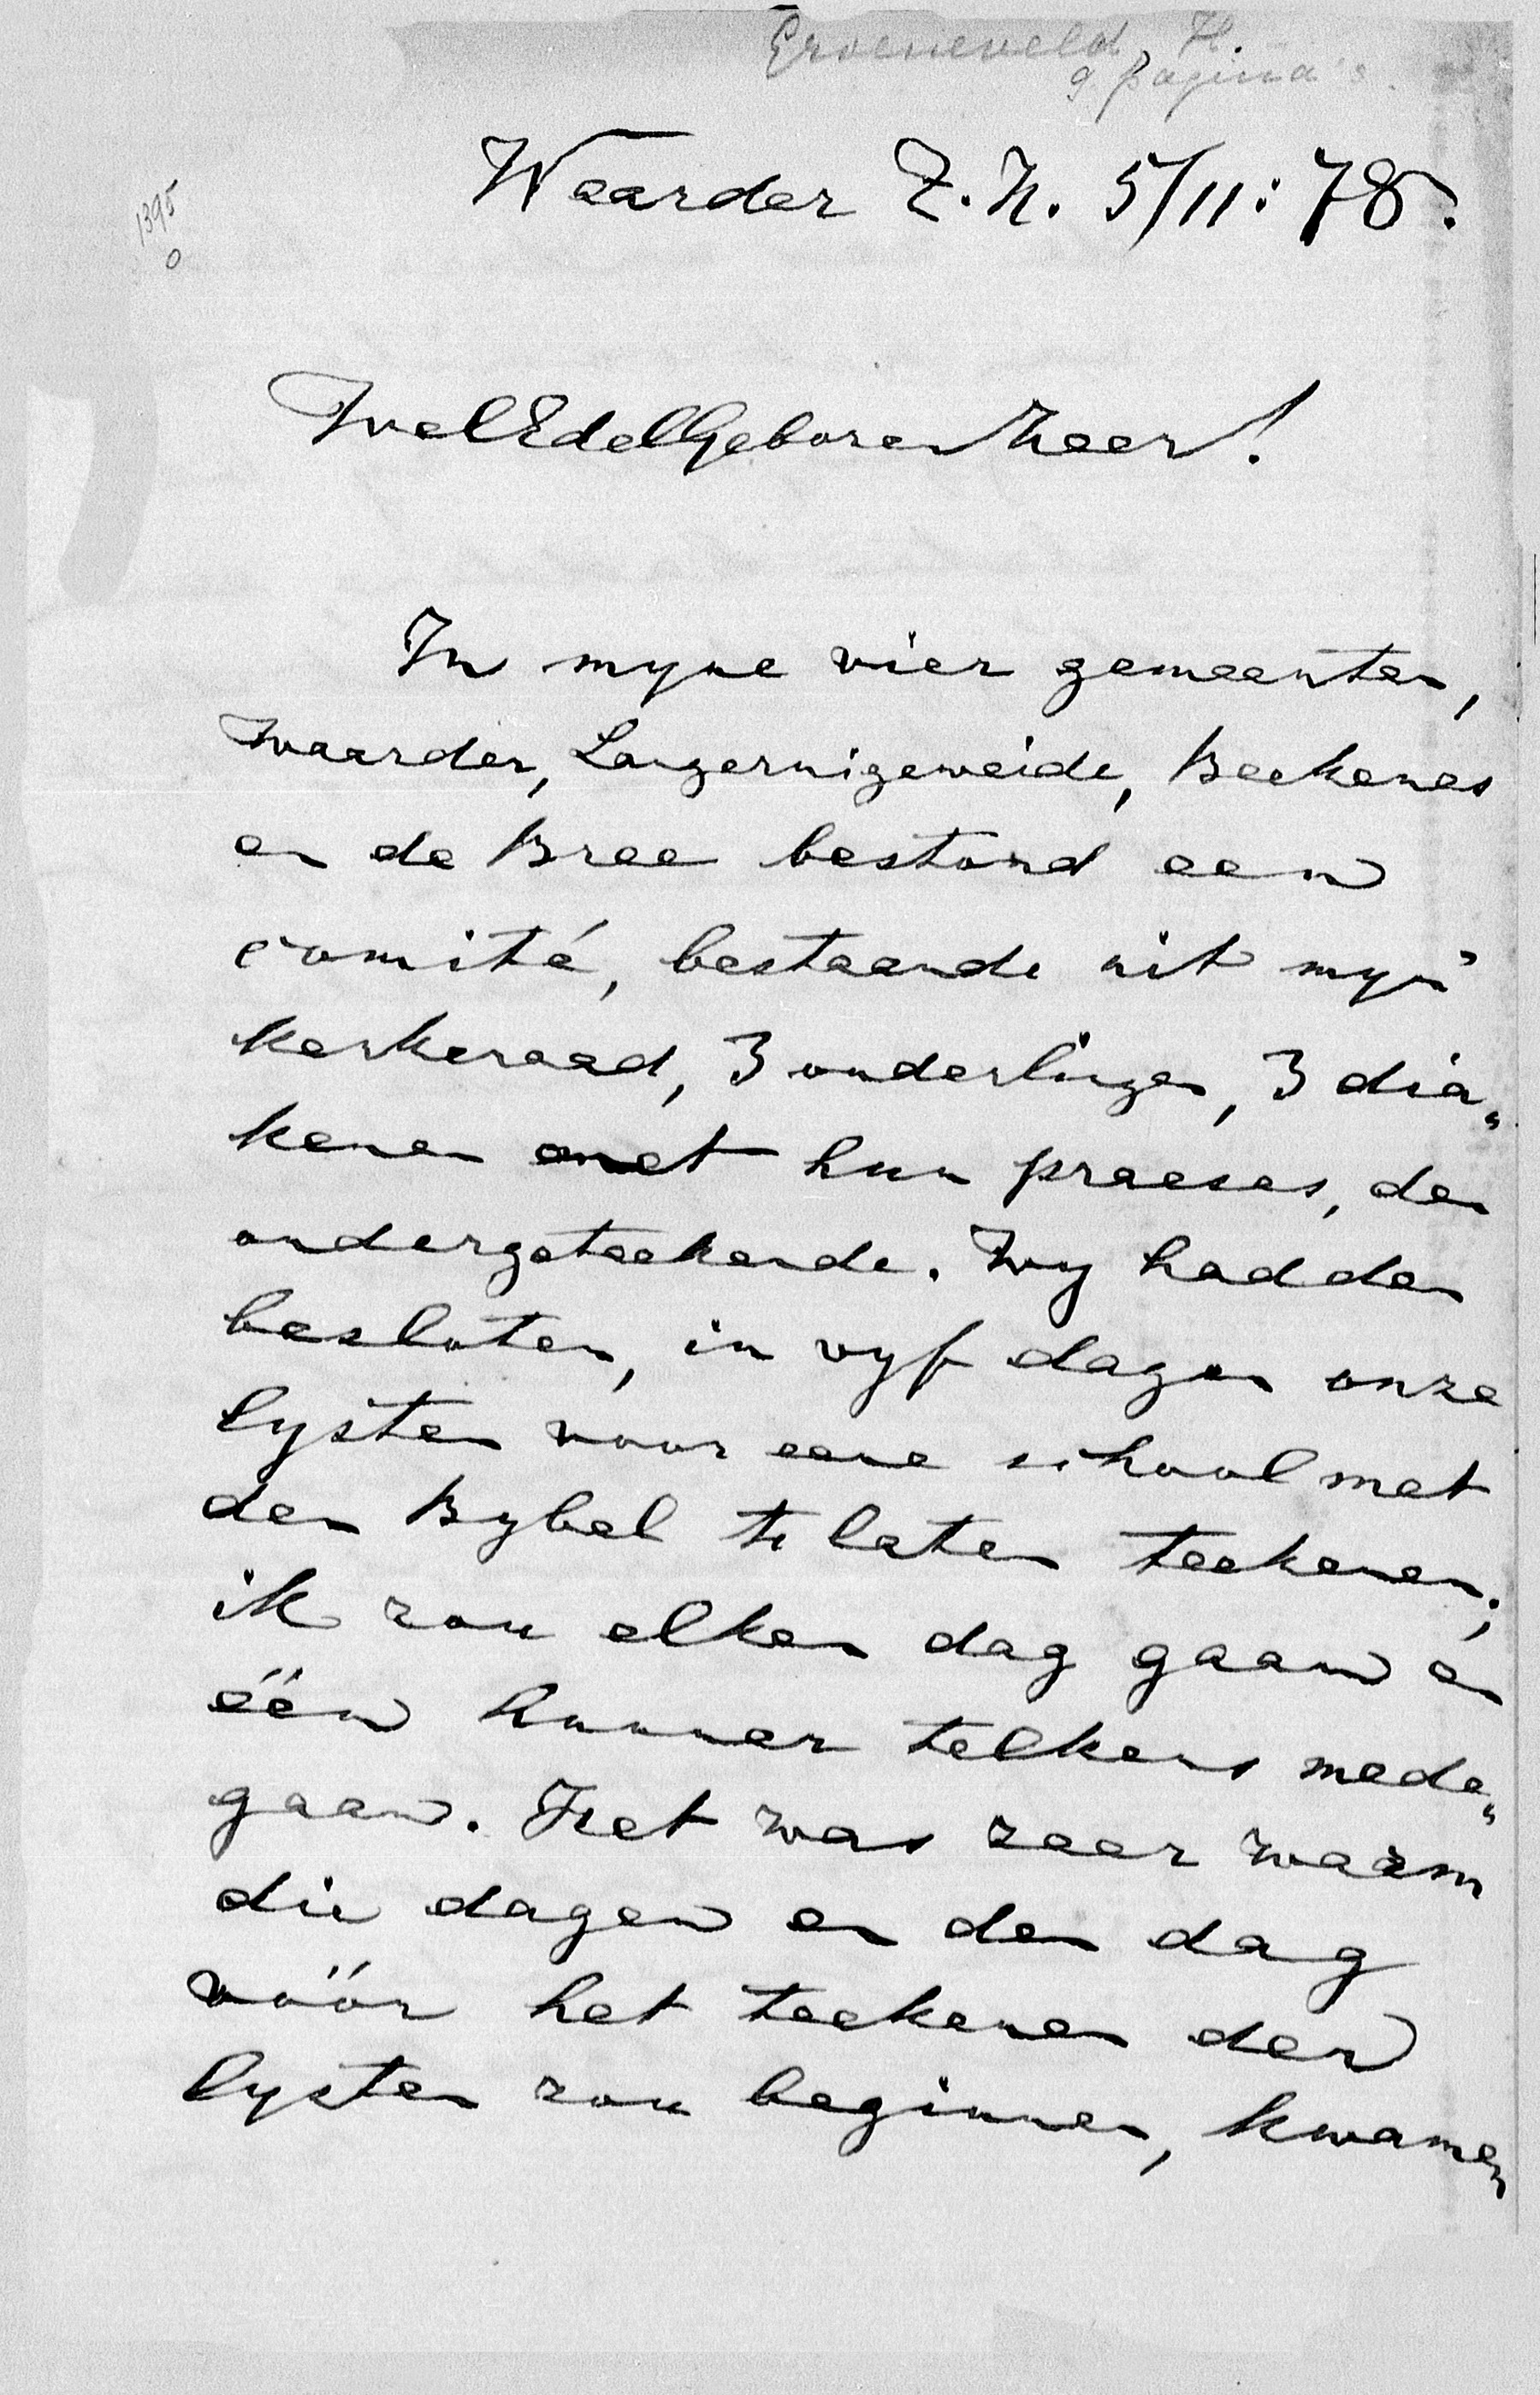 Groeneveld, H.
9 pagina's.
Waarder Z. H. 5/11: 78.
1395
0
WelEdelGeboren Heer!
In myne vier gemeenten,
Waarder, Langeruigeweide, Beekenes
en de Bree bestond een
comité, bestaande uit myn
kerkeraad, 3 ouderlingen, 3 dia„
kenen met hun praeses, den
ondergeteekende. Wy hadden
besloten, in vyf dagen onze
lysten voor eene school met
den Bybel te laten teekenen;
ik zou elken dag gaan en
één hunner telkens mede„
gaan. Het was zeer warm
die dagen en den dag
vóór het teekenen der
lysten zou beginnen, kwamen